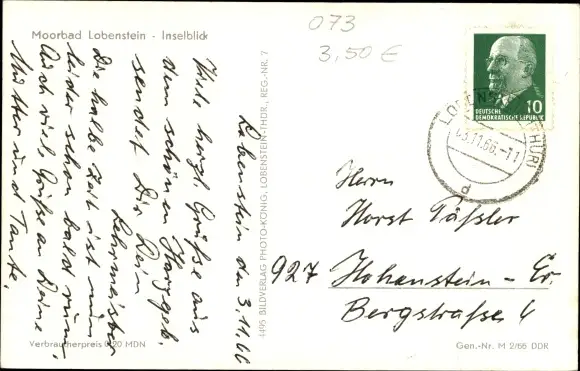 Moorbad Lobenstein - Inselblick
073
3,50 €
Lobenstein den 3.11.66
Viele herzl. Grüße aus
dem schönen Harzgeb.
sendet Dir Dein
Lehrmeister
Die halbe Zeit ist nun
leider schon bald rum.
Auch viel Grüße an Deine
Mutter und Tante.
Verbraucherpreis 0,20 MDN
4495 BILDVERLAG PHOTO-KÖNIG, LOBENSTEIN-THÜR., REG.-NR. 7
10
DEUTSCHE
DEMOKRATISCHE REPUBLIK
LOBENSTEIN (THÜR)
03.11.66.-11
d
Herrn
Horst Täßler
927 Hohenstein-Er.
Bergstraße 4
Gen.-Nr. M 2/66 DDR